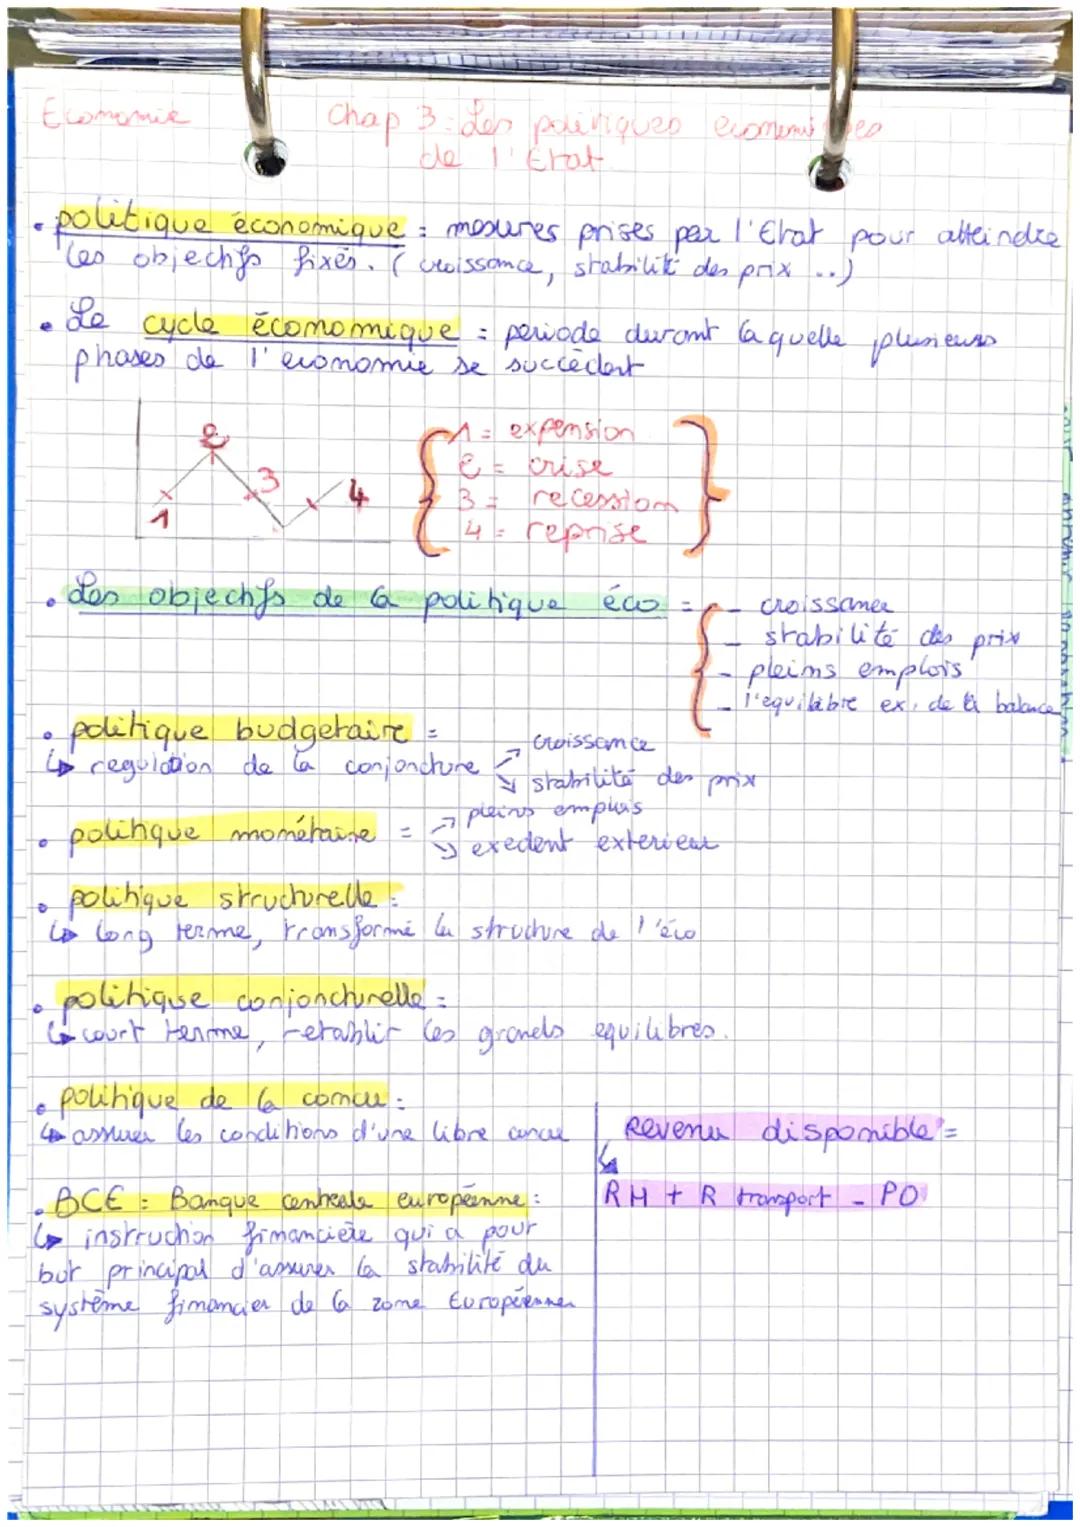 Economie
Chap 3: Les politiques economiques
de l'Etat
• politique économique = mesures prises par l'Etat pour atteindre
les objectifs fixés. (croissance, stabilité des prix ...)
• Le cycle économique = periode durant laquelle plusieurs
phases de l'economie se succèdent
1
2
3
4
1 = expension
2 = crise
3 = recession
4 = reprise
• Les objectifs de la politique éco =
- croissance
- stabilité des prix
- pleins emplois
- l'equilibre ex. de la balance
• politique budgetaire =
↳ regulation de la conjoncture
↗ croissance
↘ stabilité des prix
• politique monétaire =
↗ pleins emplois
↘ exedent exterieur
• politique structurelle :
↳ long terme, transformé la structure de l'éco
• politique conjoncturelle :
↳ court terme, retablir les grands equilibres.
• politique de la concu :
↳ assurer les conditions d'une libre concu
• BCE : Banque centrale européenne :
↳ instruction financière qui a pour
but principal d'assurer la stabilité du
système financier de la zone Européenne
Revenu disponible =
↳
RH + R transport - PO